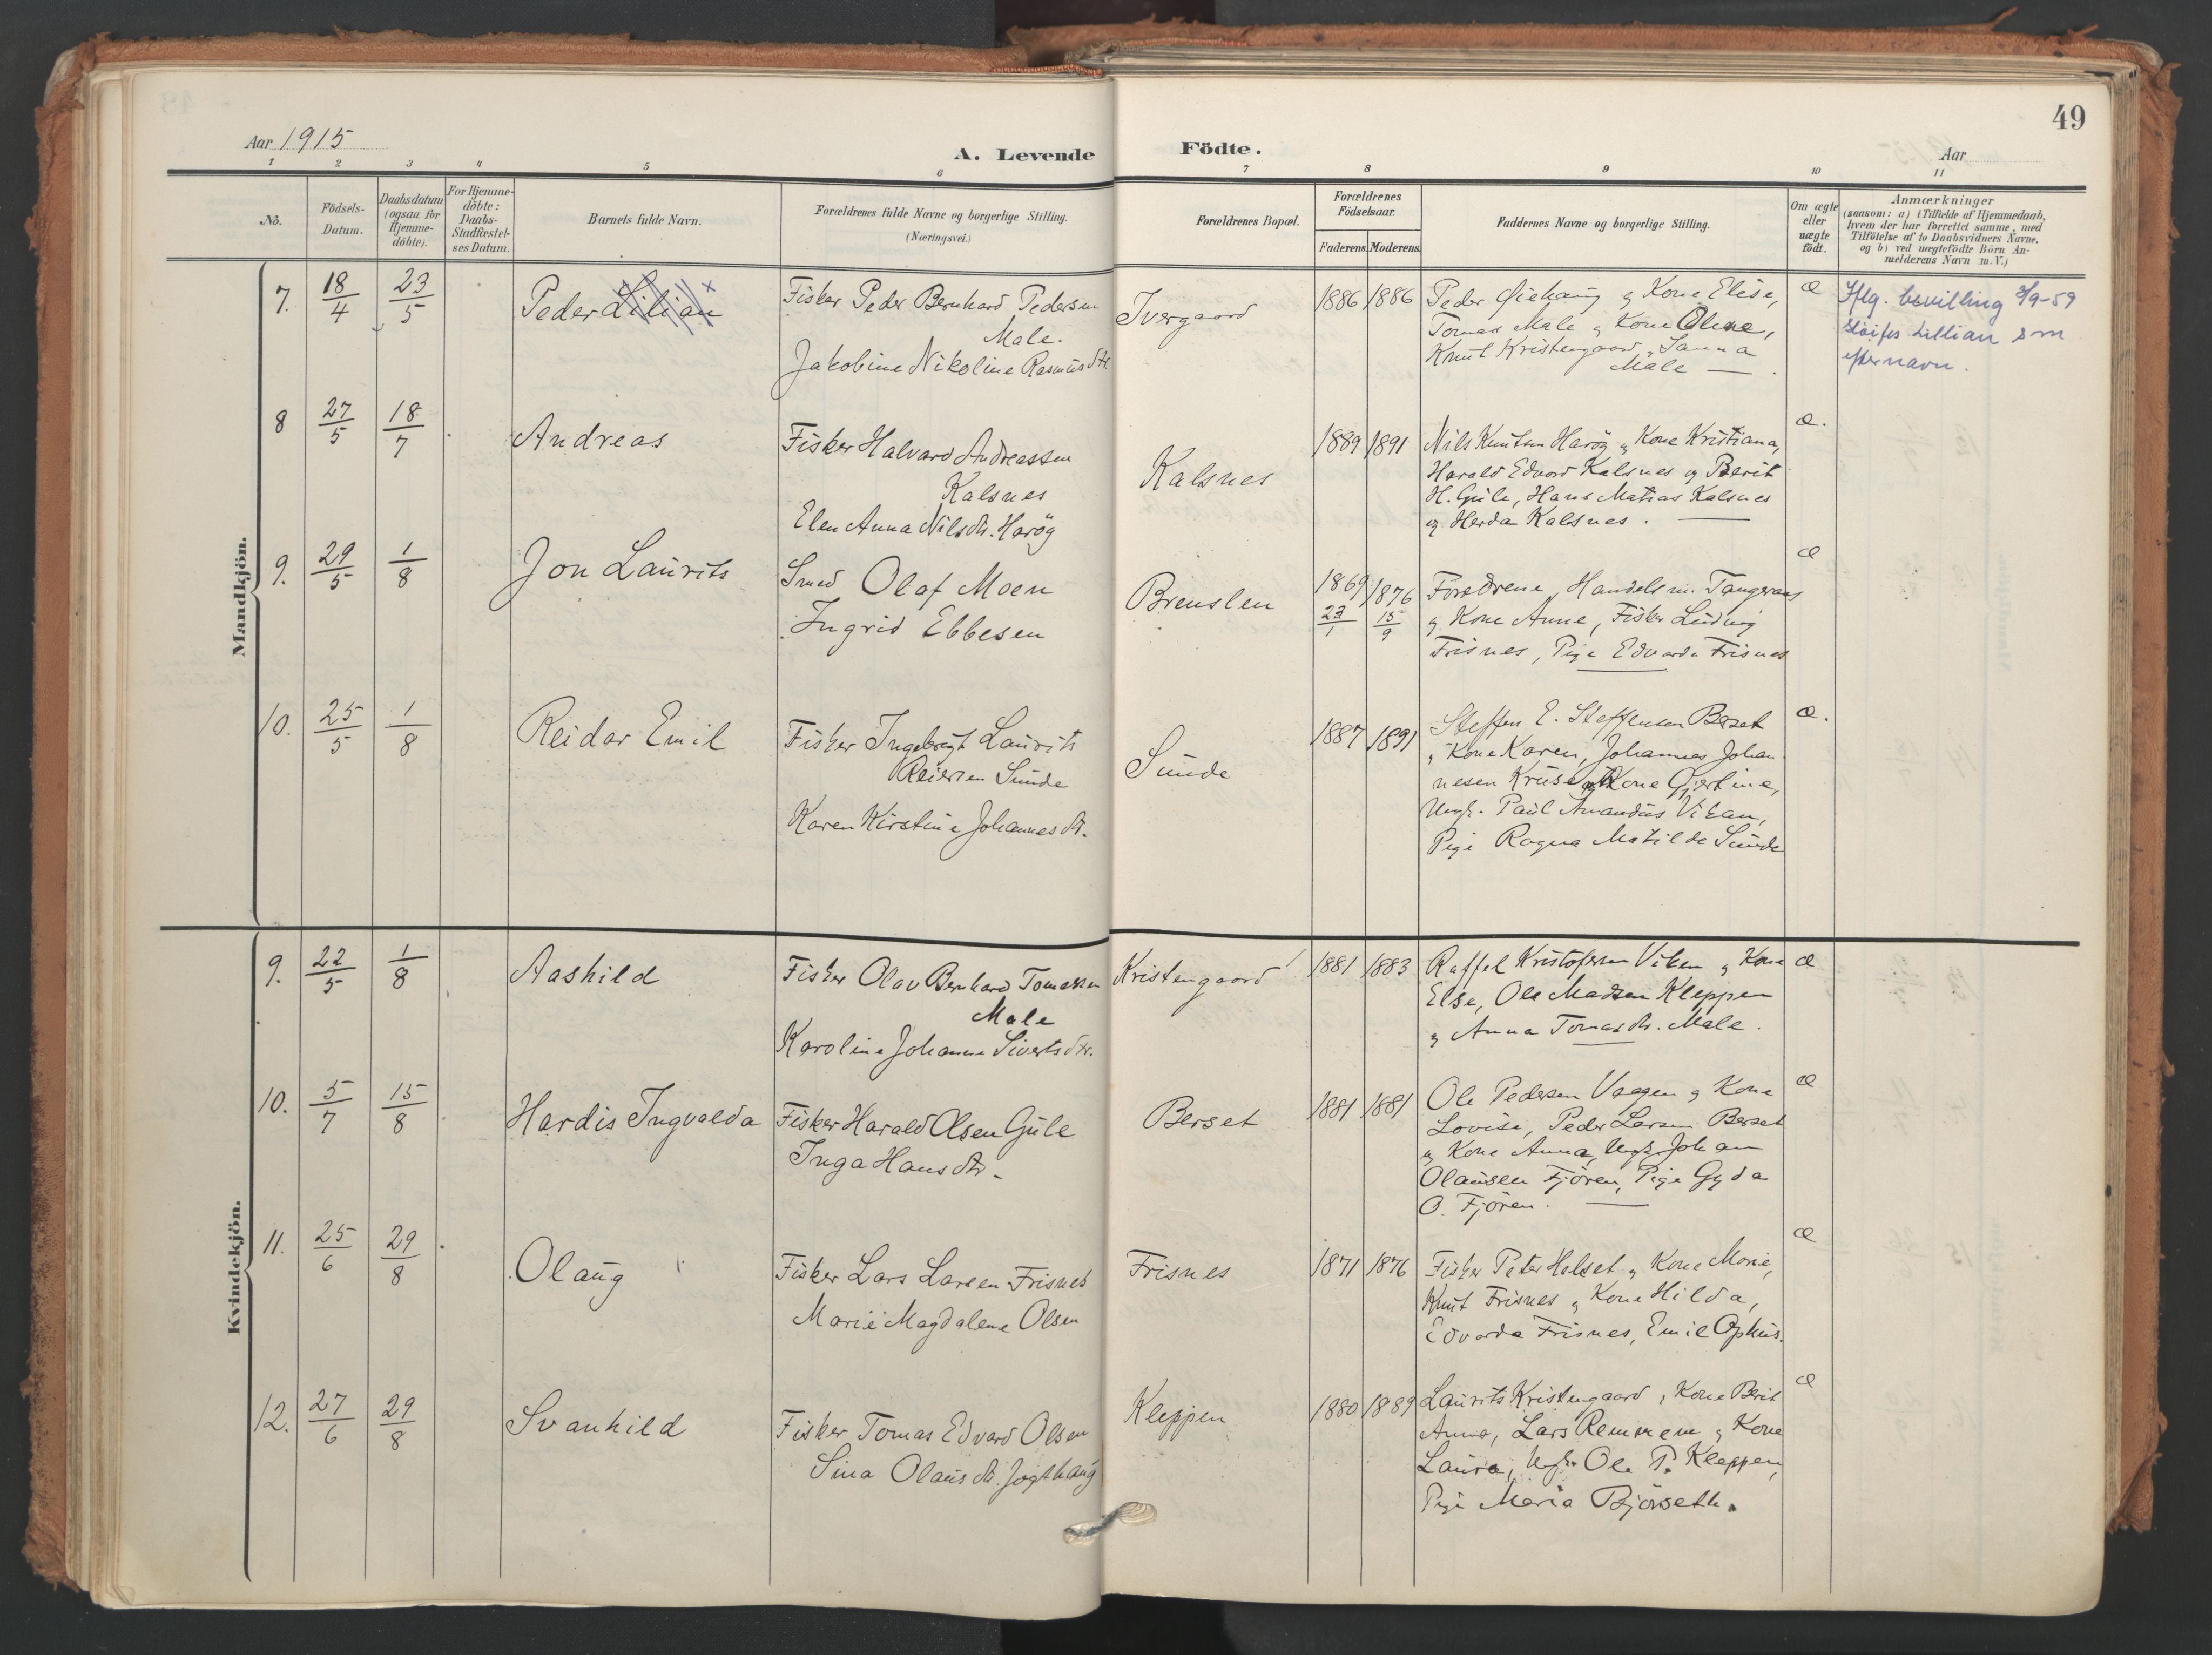 49
Aar 1915
A. Levende
Födte.
Aar
1 2 3 4 5 6 7 8 9 10 11
No.
Födsels-
Datum.
Daabsdatum
(ogsaa for
Hjemme-
döbte).
For Hjemme-
döbte:
Daabs-
Stadfæstel-
ses Datum.
Barnets fulde Navn.
Forældrenes fulde Navne og borgerlige Stilling.
(Næringsvei.)
Forældrenes Bopæl.
Forældrenes
Födselsaar.
Faderens. Moderens.
Faddernes Navne og borgerlige Stilling.
Om ægte
eller
uægte
födt.
Anmærkninger
(saasom: a) i Tilfælde af Hjemmedaab,
hvem der har forrettet samme, med
Tilföielse af to Daabsvidners Navne.
og b) ved uægtefödte Börn An-
melderens Navn m. V.)
Mandkjön.
7. 18/4 23/5
Peder Lilian x
Fisker Peder Bernhard Pedersen
Male.
Jakobine Nikoline Rasmusdtr
Ivergaard
1886 1886
Peder Øiehaug og Kone Elise,
Tomas Male og Kone Oline,
Knut Kristengaard, Sanna
Male
æ
Iflg. bevilling 3/9-59
sløifes Lillian som
efternavn.
8 27/5 18/7
Andreas
Fisker Halvard Andreassen
Kalsnes
Elen Anna Nilsdtr. Harög
Kalsnes
1889 1891
Nils Knutsen Harög og Kone Kristiana,
Harald Edvard Kalsnes og Berit
H. Gule, Hans Matias Kalsnes
og Herda Kalsnes.
æ.
9. 29/5 1/8
Jon Laurits
Smed Olaf Moen
Ingrid Ebbesen
Brenslen
1869 23/1 1876 15/9
Foreldrene, Handelsm. Tangeraas
og Kone Anne, Fisker Ludvig
Frisnes, Pige Edvarda Frisnes
æ
10. 25/5 1/8
Reidar Emil
Fisker Ingebrigt Laurits
Reiersen Sunde
Karen Kirstine Johannesdtr.
Sunde
1887 1891
Steffen E. Steffensen Berset
og Kone Karen, Johannes Johan
nesen Kruse og Kone Gjertine,
Ungk. Paul Amandus Vikan,
Pige Ragna Matilde Sunde
æ.
Kvindekjön.
9. 22/5 1/8
Aashild
Fisker Olav Bernhard Tomassen
Male
Karoline Johanne Sivertsdtr.
Kristengaard
1881 1883
Raffel Kristofersen Viken og Kone
Else, Ole Madsen Kleppen
og Anna Tomasdtr. Male.
æ
10. 5/7 15/8
Hardis Ingvalda
Fisker Harald Olsen Gule
Inga Hansdtr.
Berset
1881 1881
Ole Pedersen Vaagen og Kone
Lovise, Peder Larsen Berset
og Kone Anna, Ungk. Johan
Olausen Fjören, Pige Gyda
O. Fjören.
æ
11. 25/6 29/8
Olaug
Fisker Lars Larsen Frisnes
Marie Magdalene Olsen
Frisnes
1871 1876
Fisker Peter Helset og Kone Marie,
Knut Frisnes og Kone Hilda,
Edvarda Frisnes, Emil Ophus.
æ
12. 27/6 29/8
Svanhild
Fisker Tomas Edvard Olsen
Sina Olausdtr. Jogthaug
Kleppen
1880 1889
Laurits Kristengaard, Kone Berit
Anna, Lars Remmem og Kone
Laura, Ungk. Ole P. Kleppen,
Pige Maria Björseth.
æ